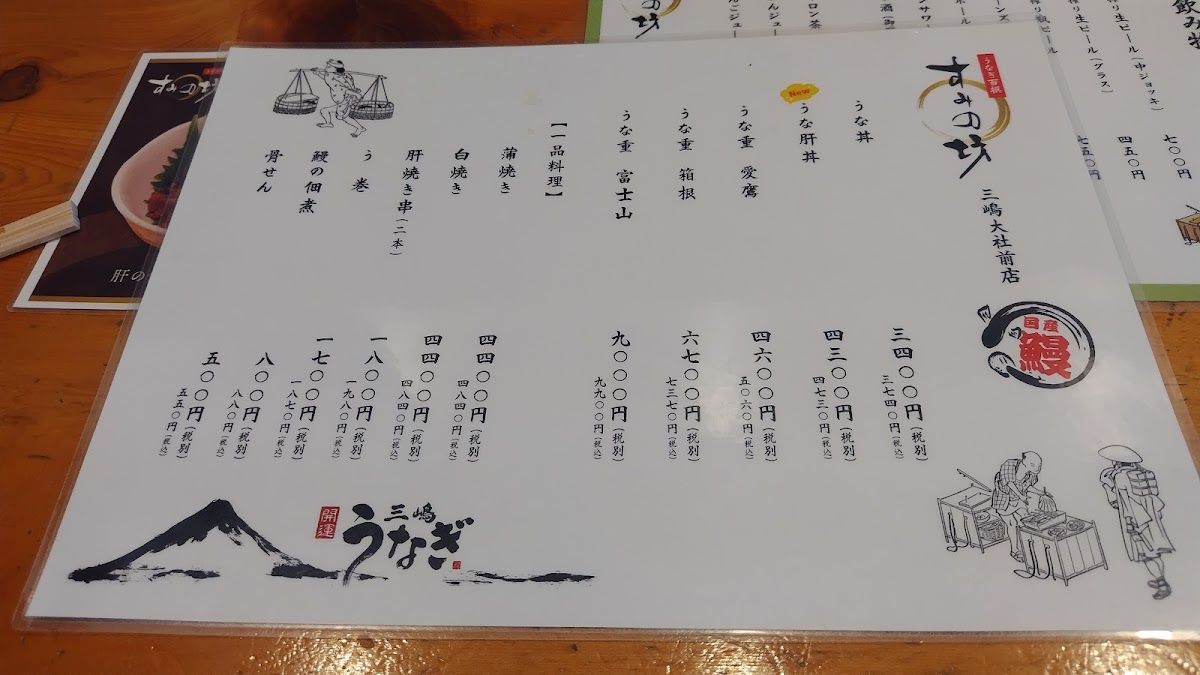 うなぎ百撰
すみの坊
三嶋大社前店
国産
鰻
うな丼
三四〇〇円(税別)
三七四〇円(税込)
New
うな肝丼
四三〇〇円(税別)
四七三〇円(税込)
うな重 愛鷹
四六〇〇円(税別)
五〇六〇円(税込)
うな重 箱根
六七〇〇円(税別)
七三七〇円(税込)
うな重 富士山
九〇〇〇円(税別)
九九〇〇円(税込)
【一品料理】
蒲焼き
四四〇〇円(税別)
四八四〇円(税込)
白焼き
四四〇〇円(税別)
四八四〇円(税込)
肝焼き串(二本)
一八〇〇円(税別)
一九八〇円(税込)
う巻
一七〇〇円(税別)
一八七〇円(税込)
鰻の佃煮
八〇〇円(税別)
八八〇円(税込)
骨せん
五〇〇円(税別)
五五〇円(税込)
開運
三嶋
うなぎ
すみの坊
肝の
の坊
飲み物
生ビール(中ジョッキ)
七〇〇円
生ビール(グラス)
四五〇円
瓶ビール
七五〇円